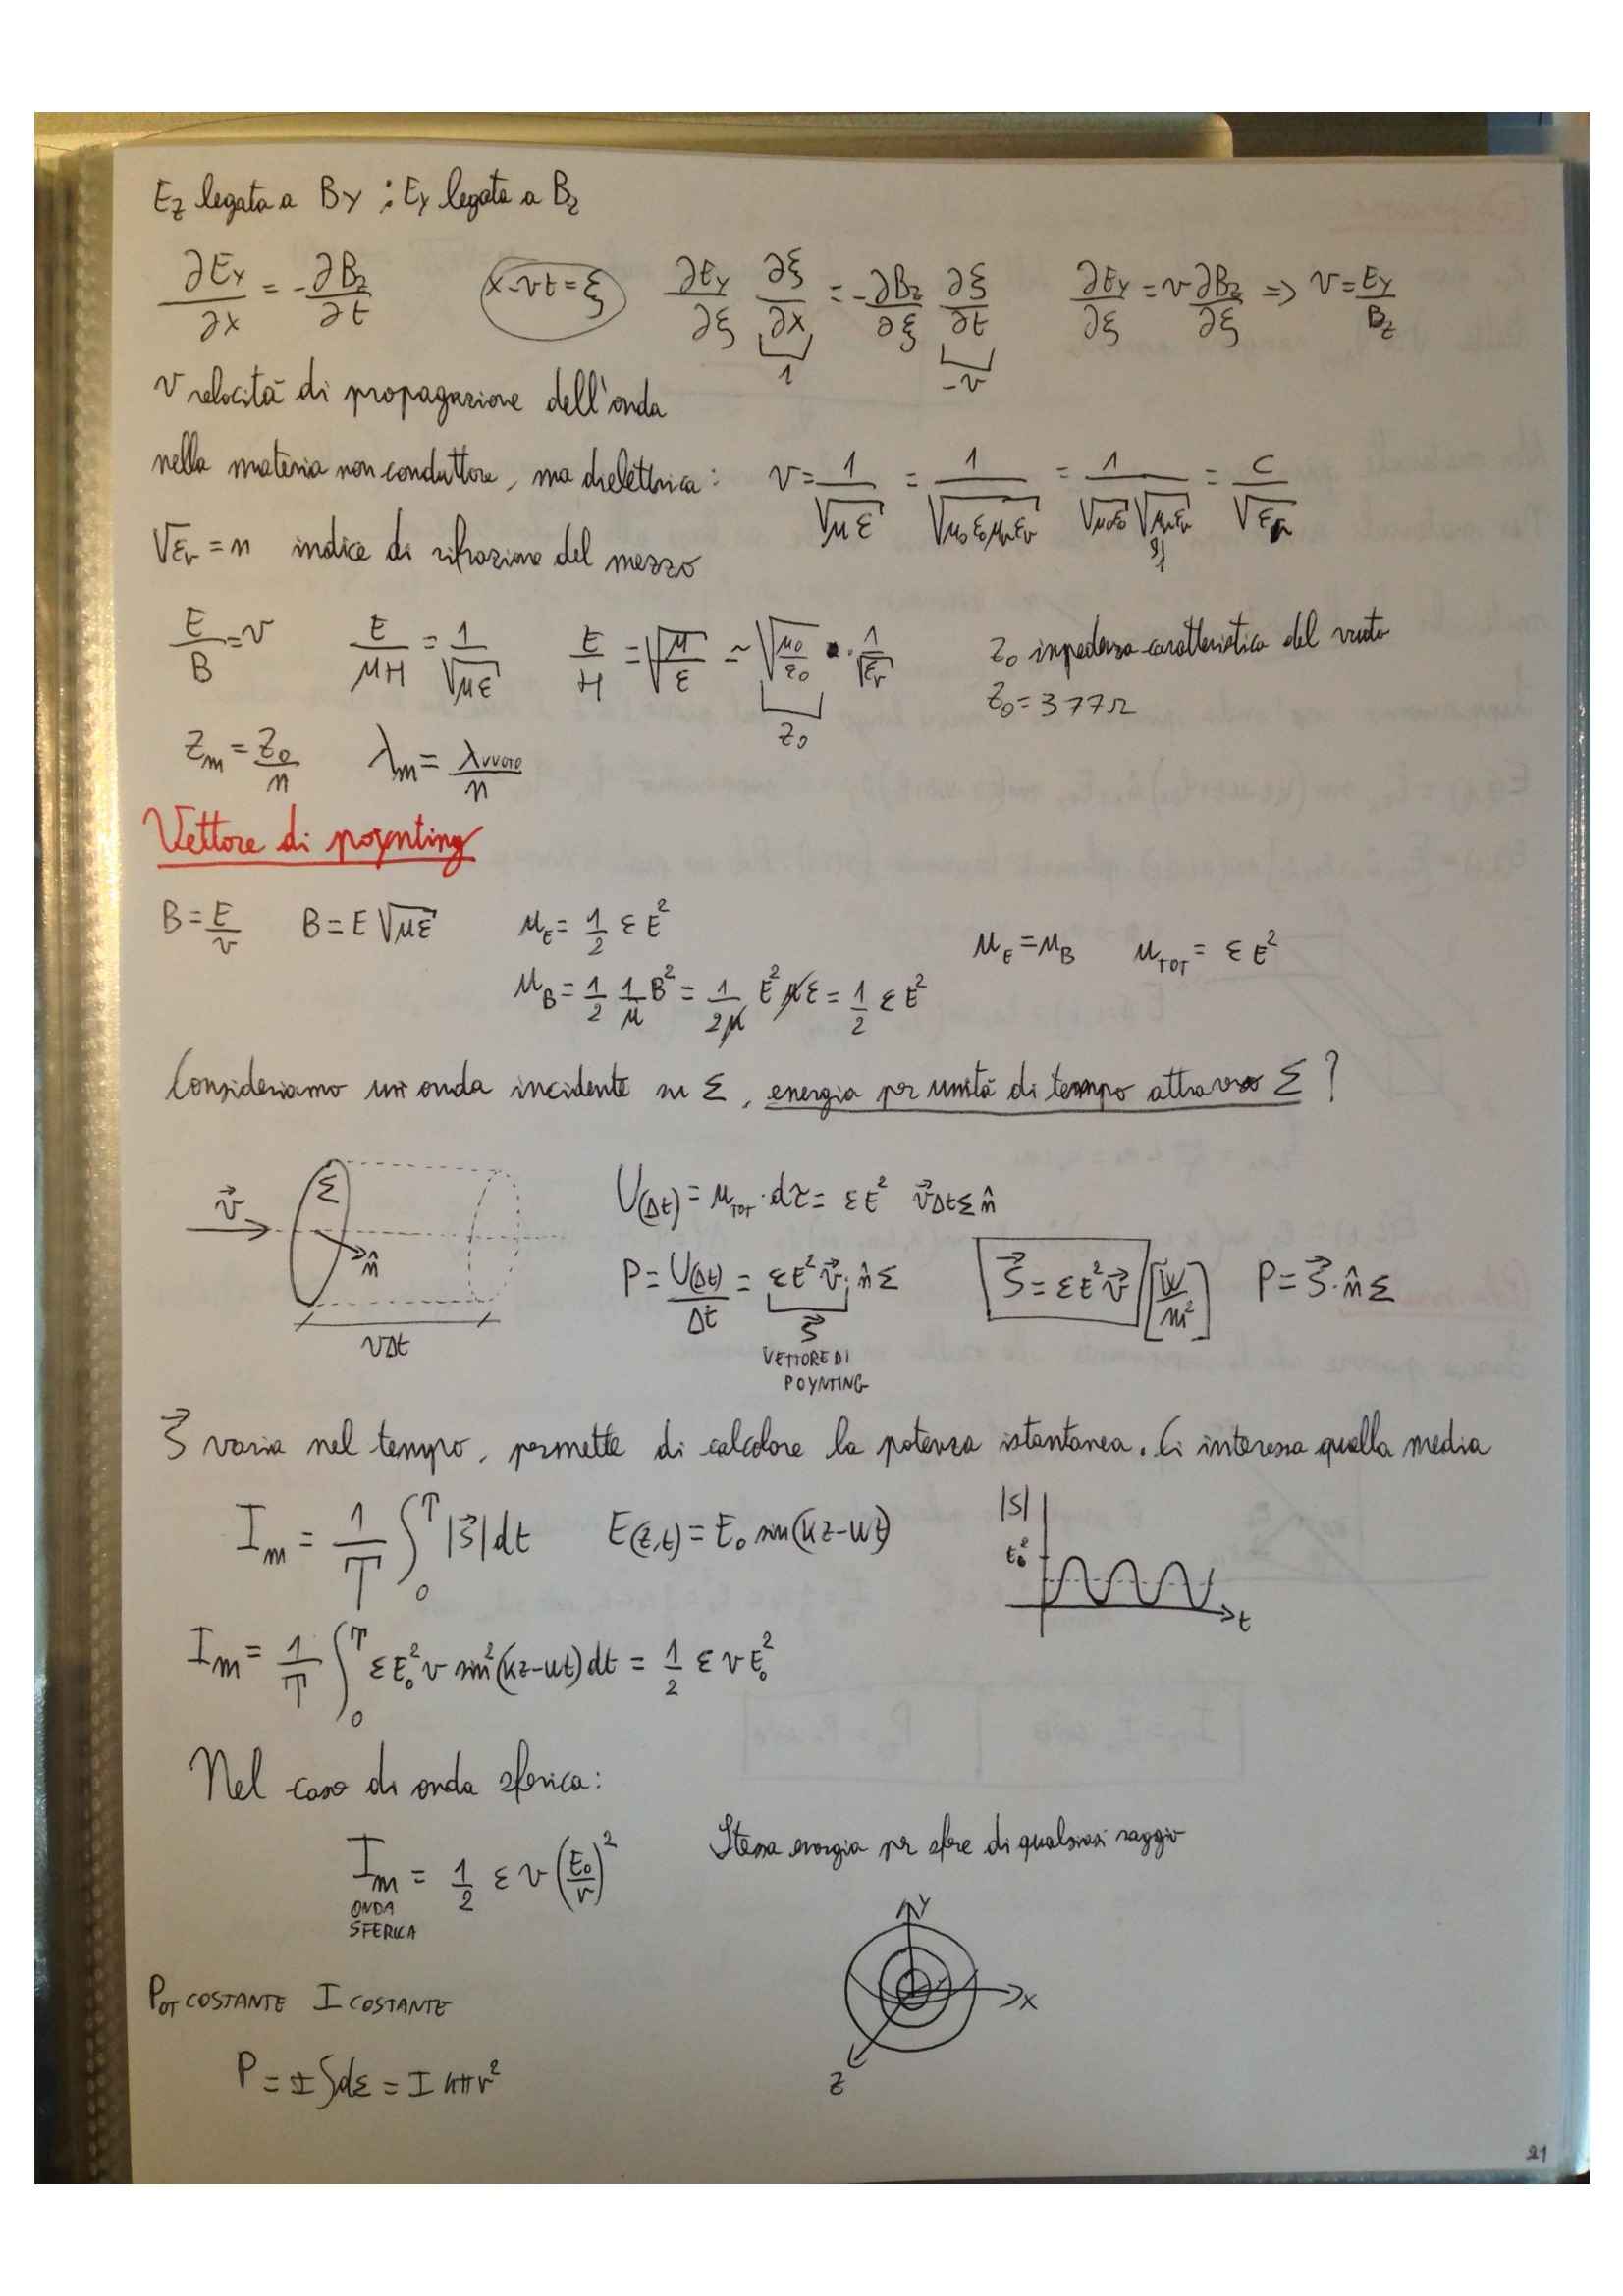 Ez legata a By ; Ey legata a Bz
∂Ey/∂x = -∂Bz/∂t   x-vt=ξ   ∂Ey/∂ξ ∂ξ/∂x = -∂Bz/∂ξ ∂ξ/∂t   ∂Ey/∂ξ = v ∂Bz/∂ξ => v = Ey/Bz
1   -v
v velocità di propagazione dell'onda
nella materia non conduttore, ma dielettrica: v = 1/√με = 1/√μ0ε0μrεr = 1/√μ0ε0 √μrεr = c/√εr
1
√εr = n indice di rifrazione del mezzo
E/B = v   E/μH = 1/√με   E/H = √μ/ε ≃ √μ0/ε0 · 1/√εr   Z0 impedenza caratteristica del vuoto
Z0   Z0 = 377Ω
Zm = Z0/n   λm = λvuoto/n
Vettore di poynting
B = E/v   B = E√με   uE = 1/2 ε E²   uE = uB   uTOT = ε E²
uB = 1/2 1/μ B² = 1/2μ E² με = 1/2 ε E²
Consideriamo un onda incidente su Σ, energia per unità di tempo attraverso Σ ?
v⃗   Σ   n̂   vΔt
U(Δt) = uTOT · dτ = εE² v⃗ΔtΣ n̂
P = U(Δt)/Δt = εE² v⃗ · n̂ Σ   S⃗ = εE² v⃗ [W/m²]   P = S⃗ · n̂ Σ
S⃗
VETTORE DI
POYNTING
S⃗ varia nel tempo, permette di calcolare la potenza istantanea. Ci interessa quella media
Im = 1/T ∫0^T |S⃗| dt   E(z,t) = E0 sin(kz-ωt)   |S|   E0²   t
Im = 1/T ∫0^T εE0² v sin²(kz-ωt) dt = 1/2 ε v E0²
Nel caso di onda sferica:
Im = 1/2 ε v (E0/r)²   Stessa energia per sfere di qualsiasi raggio
ONDA
SFERICA
Y   X   Z
POT COSTANTE I COSTANTE
P = I ∫dΣ = I 4πr²
21